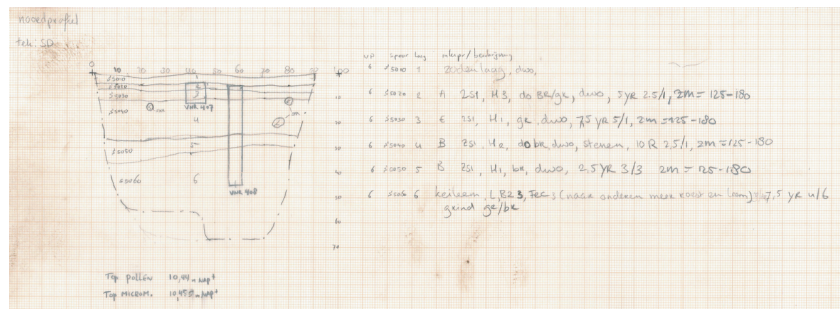 noordprofiel
tek: SD
0 10 20 30 40 50 60 70 80 100
S5010 1
S5020 2
S5030 3
S5040 4
S5050 5
S5060 6
VNR 40P
VNR 40P
10
20
30
40
50
60
70
WP spoor laag interpr/beschrijving
6 S5010 1 zodenlaag, dwo,
6 S5020 2 A ZS1, H3, do BR/ge, dwo, 5yr 2.5/1, ZM = 125-180
6 S5030 3 E ZS1, H1, ge, dwo, 7,5 YR 5/1, ZM = 125-180
6 S5040 4 B ZS1, H2, do be, dwo, stenen, 10 R 2.5/1, ZM = 125-180
6 S5050 5 B ZS1, H1, be, dwo, 2.5 YR 3/3 ZM = 125-180
6 6 keileem, (naar onderen meer roest en leem) 7,5 YR 4/6
grind ge/be
Top pollen 10,44 m NAP+
Top MICROM. 10,455 m NAP+